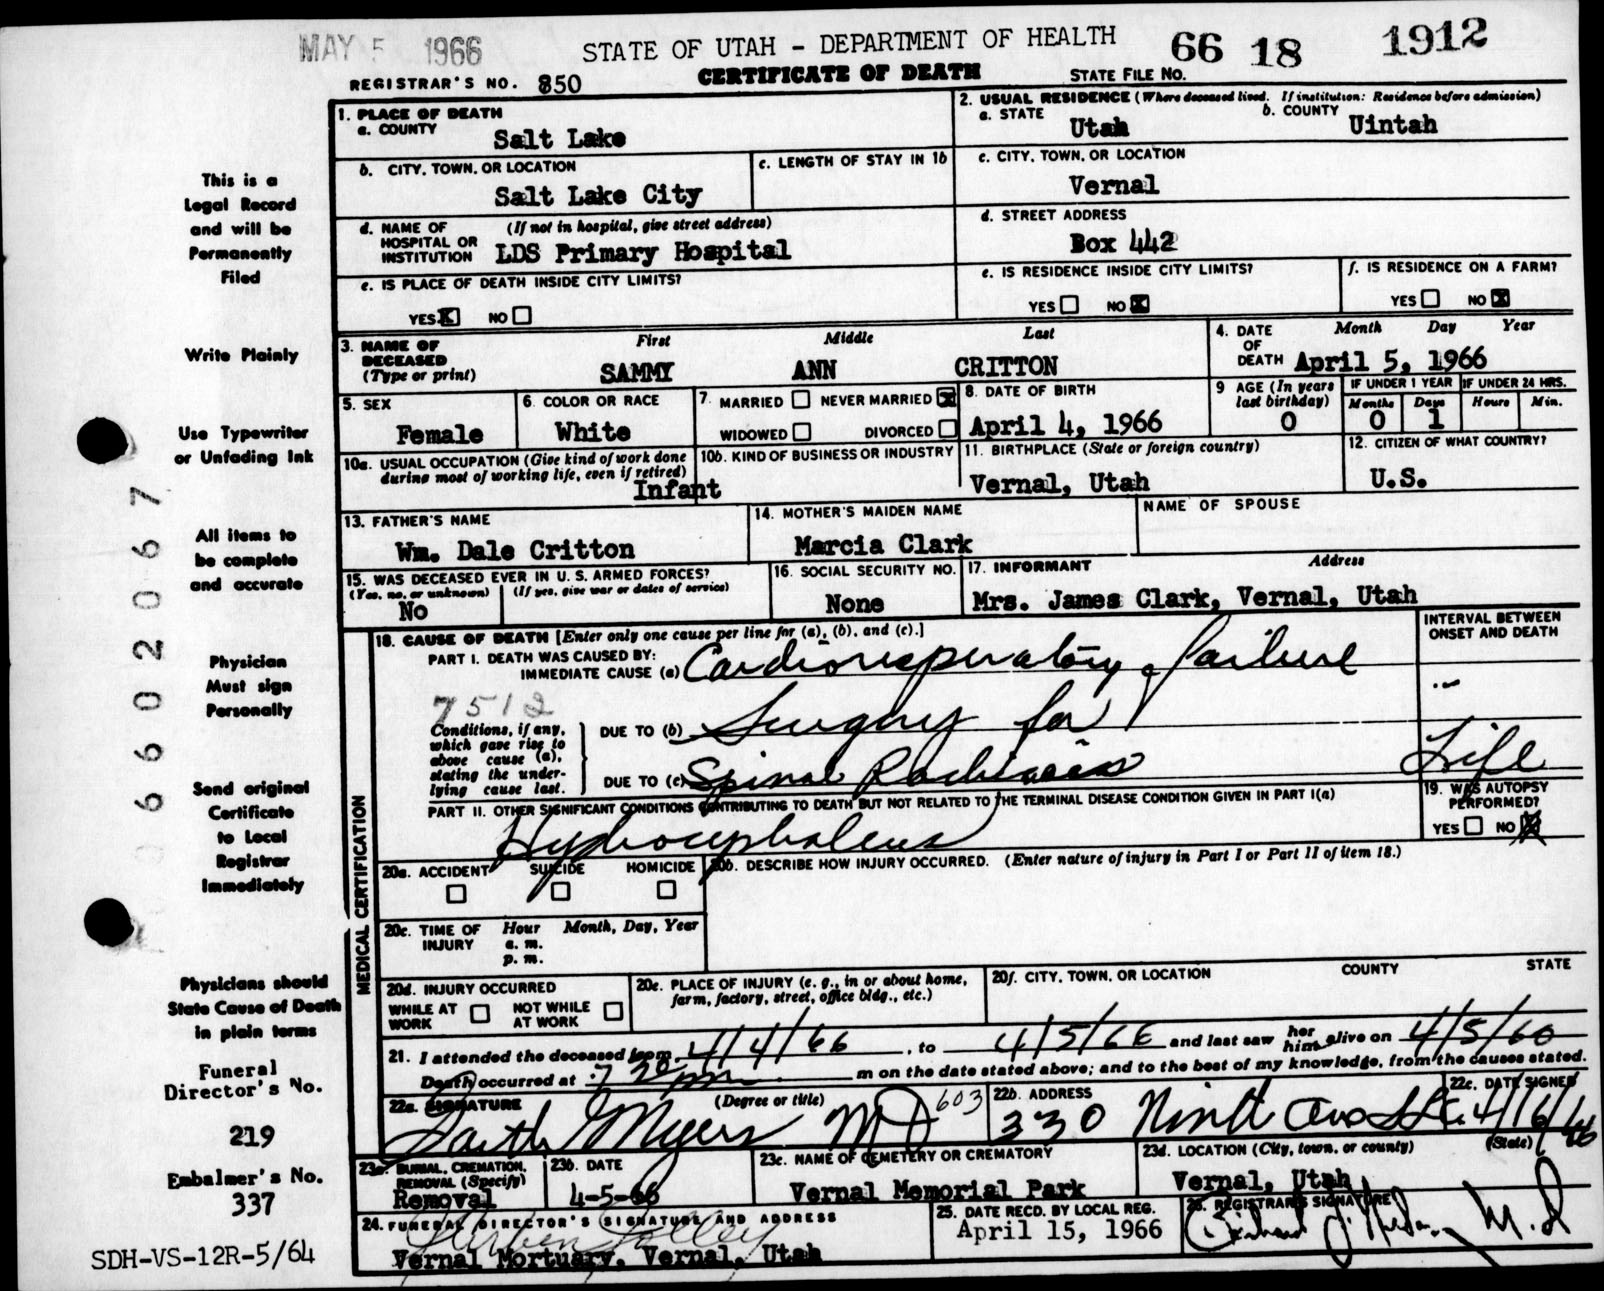 MAY 5 1966
STATE OF UTAH - DEPARTMENT OF HEALTH
66 18 1912
REGISTRAR'S NO. 850
CERTIFICATE OF DEATH
STATE FILE NO.
1. PLACE OF DEATH
a. COUNTY
Salt Lake
2. USUAL RESIDENCE (Where deceased lived. If institution: Residence before admission)
a. STATE
Utah
b. COUNTY
Uintah
b. CITY, TOWN, OR LOCATION
Salt Lake City
c. LENGTH OF STAY IN 1b
c. CITY, TOWN, OR LOCATION
Vernal
d. NAME OF HOSPITAL OR INSTITUTION
(If not in hospital, give street address)
LDS Primary Hospital
d. STREET ADDRESS
Box 442
e. IS PLACE OF DEATH INSIDE CITY LIMITS?
YES X NO
e. IS RESIDENCE INSIDE CITY LIMITS?
YES NO X
f. IS RESIDENCE ON A FARM?
YES NO X
3. NAME OF DECEASED
(Type or print)
First Middle Last
SAMMY ANN CRITTON
4. DATE OF DEATH
Month Day Year
April 5, 1966
5. SEX
Female
6. COLOR OR RACE
White
7. MARRIED NEVER MARRIED X
WIDOWED DIVORCED
8. DATE OF BIRTH
April 4, 1966
9 AGE (In years last birthday)
0
IF UNDER 1 YEAR
Months Days
0 1
IF UNDER 24 HRS.
Hours Min.
10a. USUAL OCCUPATION (Give kind of work done
during most of working life, even if retired)
Infant
10b. KIND OF BUSINESS OR INDUSTRY
11. BIRTHPLACE (State or foreign country)
Vernal, Utah
12. CITIZEN OF WHAT COUNTRY?
U.S.
13. FATHER'S NAME
Wm. Dale Critton
14. MOTHER'S MAIDEN NAME
Marcia Clark
NAME OF SPOUSE
15. WAS DECEASED EVER IN U. S. ARMED FORCES?
(Yes, no, or unknown) (If yes, give war or dates of service)
No
16. SOCIAL SECURITY NO.
None
17. INFORMANT Address
Mrs. James Clark, Vernal, Utah
MEDICAL CERTIFICATION
18. CAUSE OF DEATH [Enter only one cause per line for (a), (b), and (c).]
INTERVAL BETWEEN ONSET AND DEATH
PART I. DEATH WAS CAUSED BY:
IMMEDIATE CAUSE (a) Cardiorespiratory failure
7512
Conditions, if any,
which gave rise to
above cause (a),
stating the under-
lying cause last.
DUE TO (b) Surgery for
DUE TO (c) Spinal Rachisis
Life
PART II. OTHER SIGNIFICANT CONDITIONS CONTRIBUTING TO DEATH BUT NOT RELATED TO THE TERMINAL DISEASE CONDITION GIVEN IN PART I(a)
Hydrocephaleus
19. WAS AUTOPSY PERFORMED?
YES NO X
20a. ACCIDENT SUICIDE HOMICIDE
20b. DESCRIBE HOW INJURY OCCURRED. (Enter nature of injury in Part I or Part II of item 18.)
20c. TIME OF INJURY
Hour Month, Day, Year
a. m.
p. m.
20d. INJURY OCCURRED
WHILE AT WORK NOT WHILE AT WORK
20e. PLACE OF INJURY (e. g., in or about home,
farm, factory, street, office bldg., etc.)
20f. CITY, TOWN, OR LOCATION COUNTY STATE
21. I attended the deceased from 4/4/66, to 4/5/66 and last saw her him alive on 4/5/66
Death occurred at 7 20 pm m on the date stated above; and to the best of my knowledge, from the causes stated.
22a. SIGNATURE (Degree or title)
Garth G Myers MD 603
22b. ADDRESS
330 Ninth Ave SLC
22c. DATE SIGNED
4/16/66
23a. BURIAL, CREMATION, REMOVAL (Specify)
Removal
23b. DATE
4-5-66
23c. NAME OF CEMETERY OR CREMATORY
Vernal Memorial Park
23d. LOCATION (City, town, or county) (State)
Vernal, Utah
24. FUNERAL DIRECTOR'S SIGNATURE AND ADDRESS
Vernal Mortuary, Vernal, Utah
25. DATE RECD. BY LOCAL REG.
April 15, 1966
26. REGISTRAR'S SIGNATURE
M.D
This is a
Legal Record
and will be
Permanently
Filed
Write Plainly
Use Typewriter
or Unfading Ink
All items to
be complete
and accurate
Physician
Must sign
Personally
Send original
Certificate
to Local
Registrar
Immediately
Physicians should
State Cause of Death
in plain terms
Funeral
Director's No.
219
Embalmer's No.
337
SDH-VS-12R-5/64
6602067